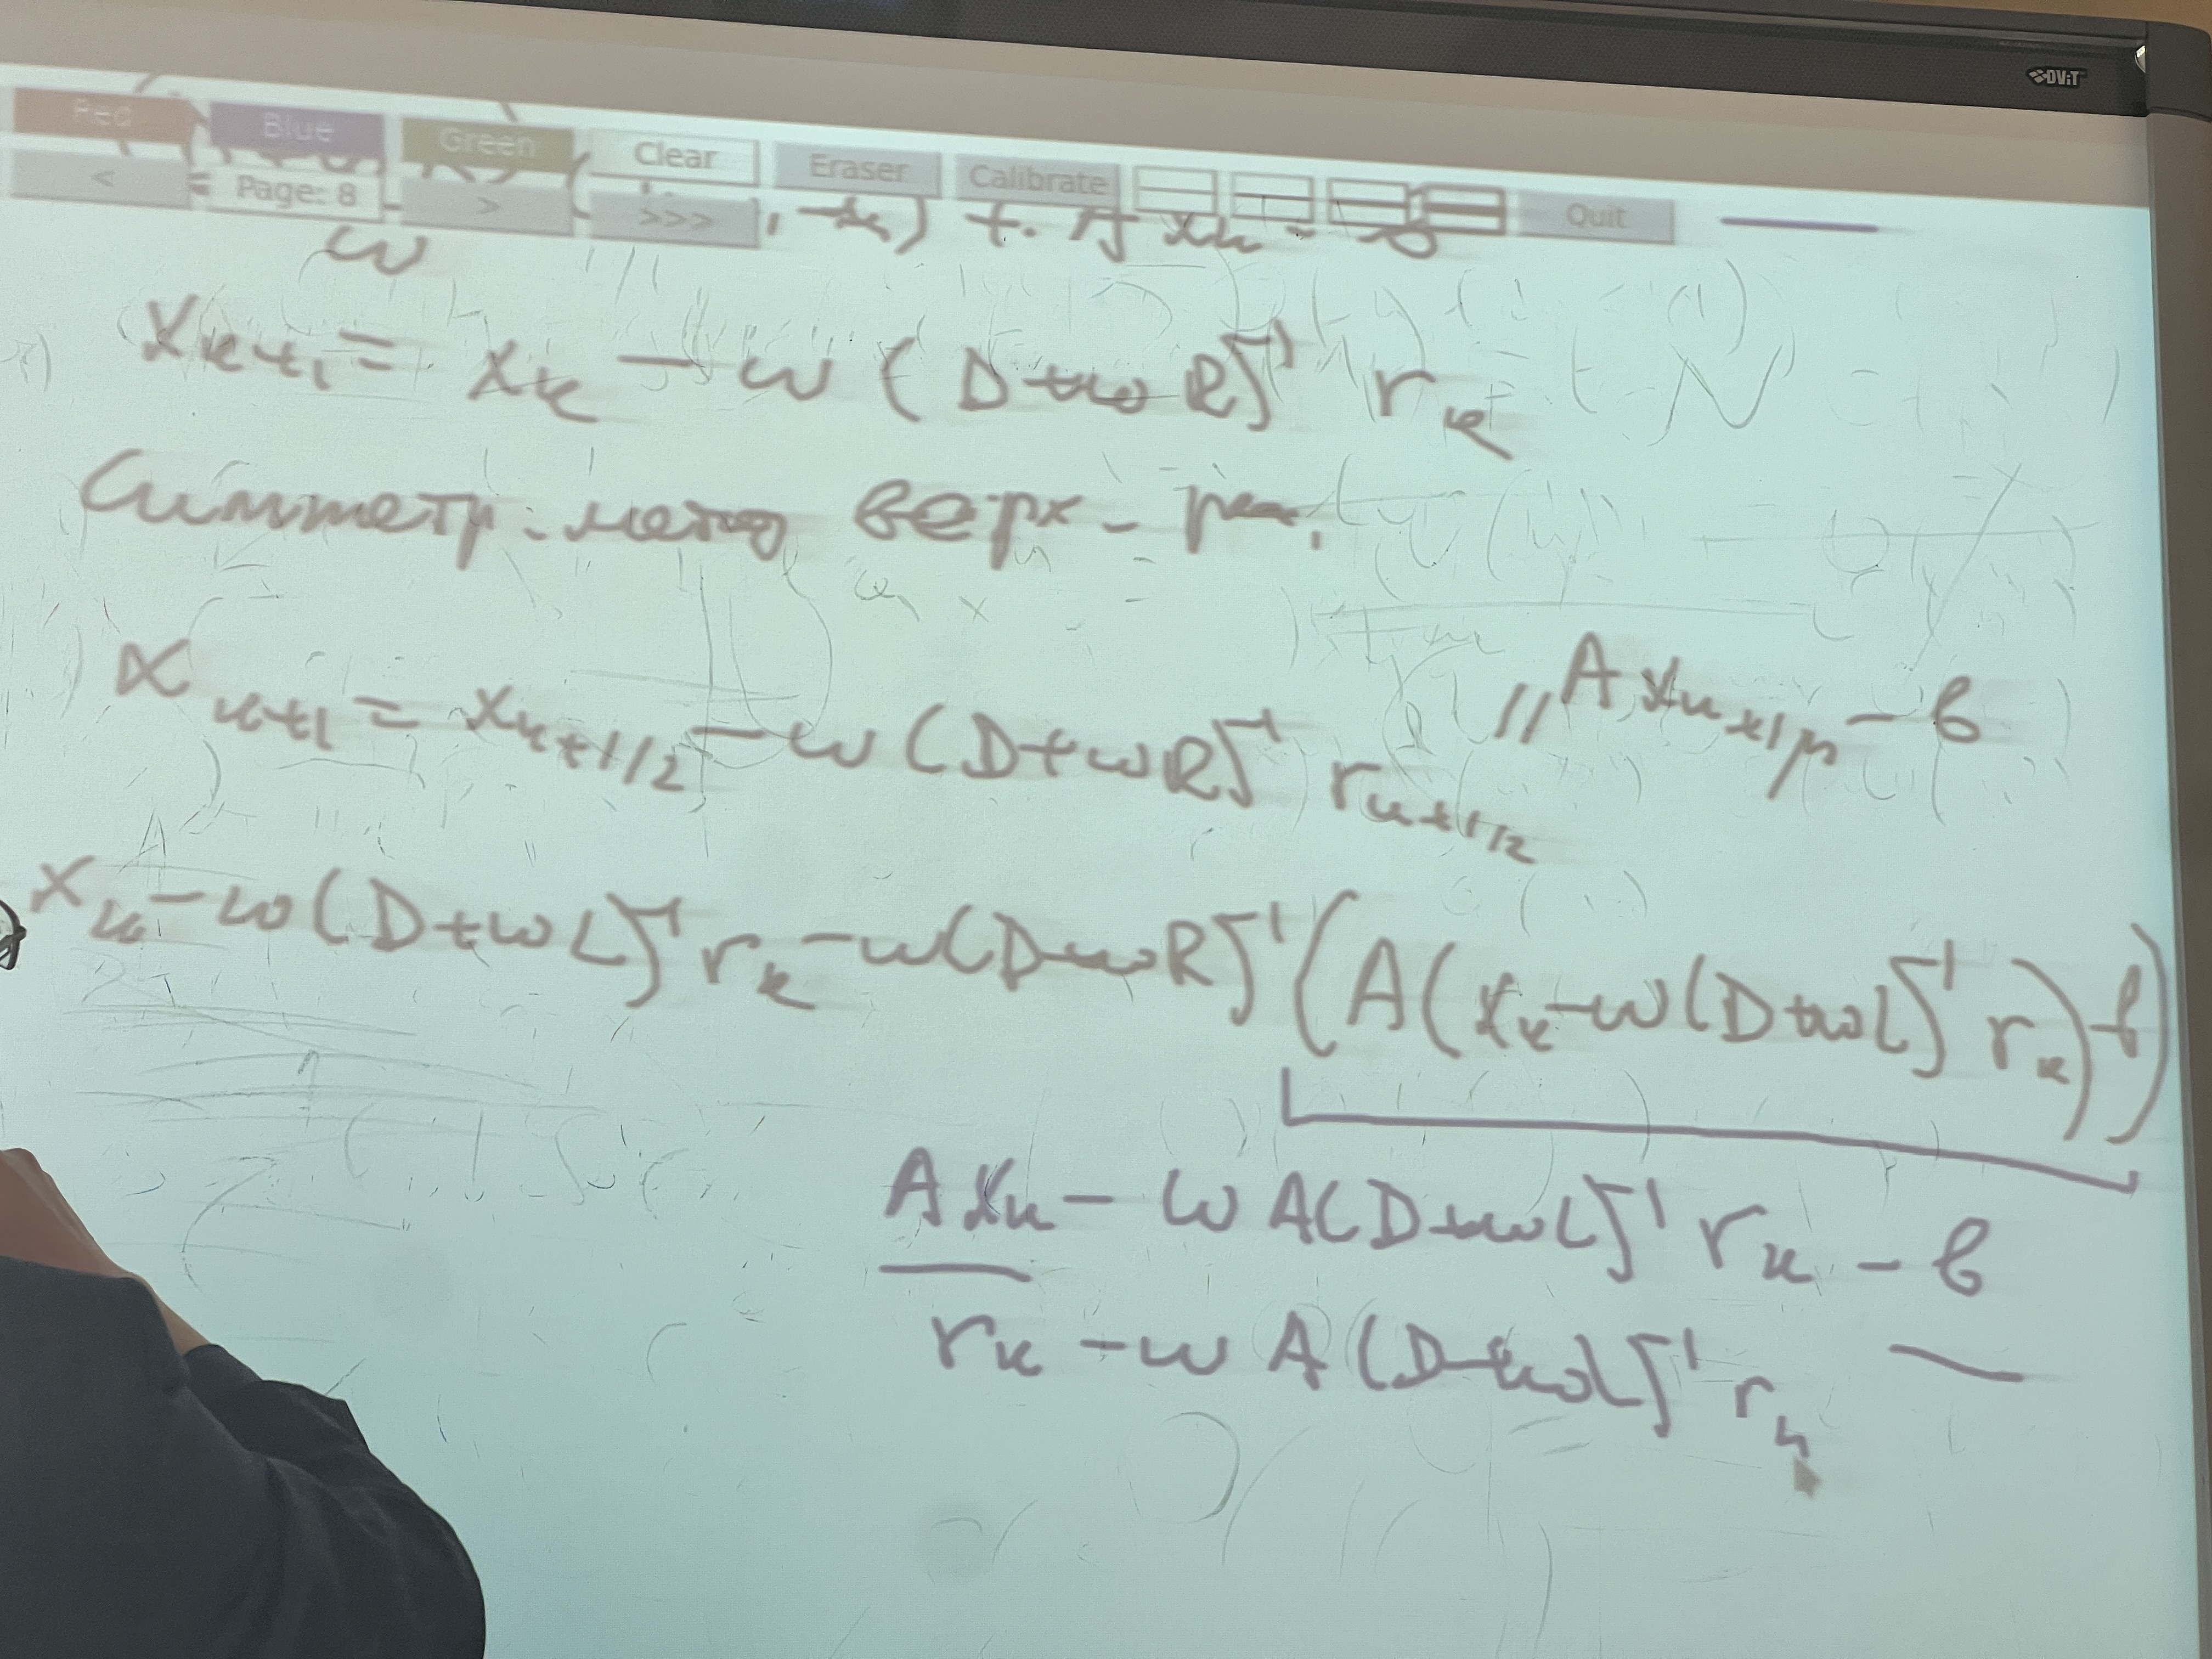 DViT
Red Blue Green Clear Eraser Calibrate
< Page: 8 > >>> Quit
ω
x_{k+1} = x_k − ω (D+ωR)^{-1} r_k
Симметр. метод верх - рел.
x_{k+1} = x_{k+1/2} − ω (D+ωR)^{-1} r_{k+1/2}
" A x_{k+1/2} − b
x_k − ω(D+ωL)^{-1} r_k − ω(D+ωR)^{-1} (A(x_k − ω(D+ωL)^{-1} r_k) − b)
A x_k − ω A(D+ωL)^{-1} r_k − b
r_k − ω A (D+ωL)^{-1} r_k